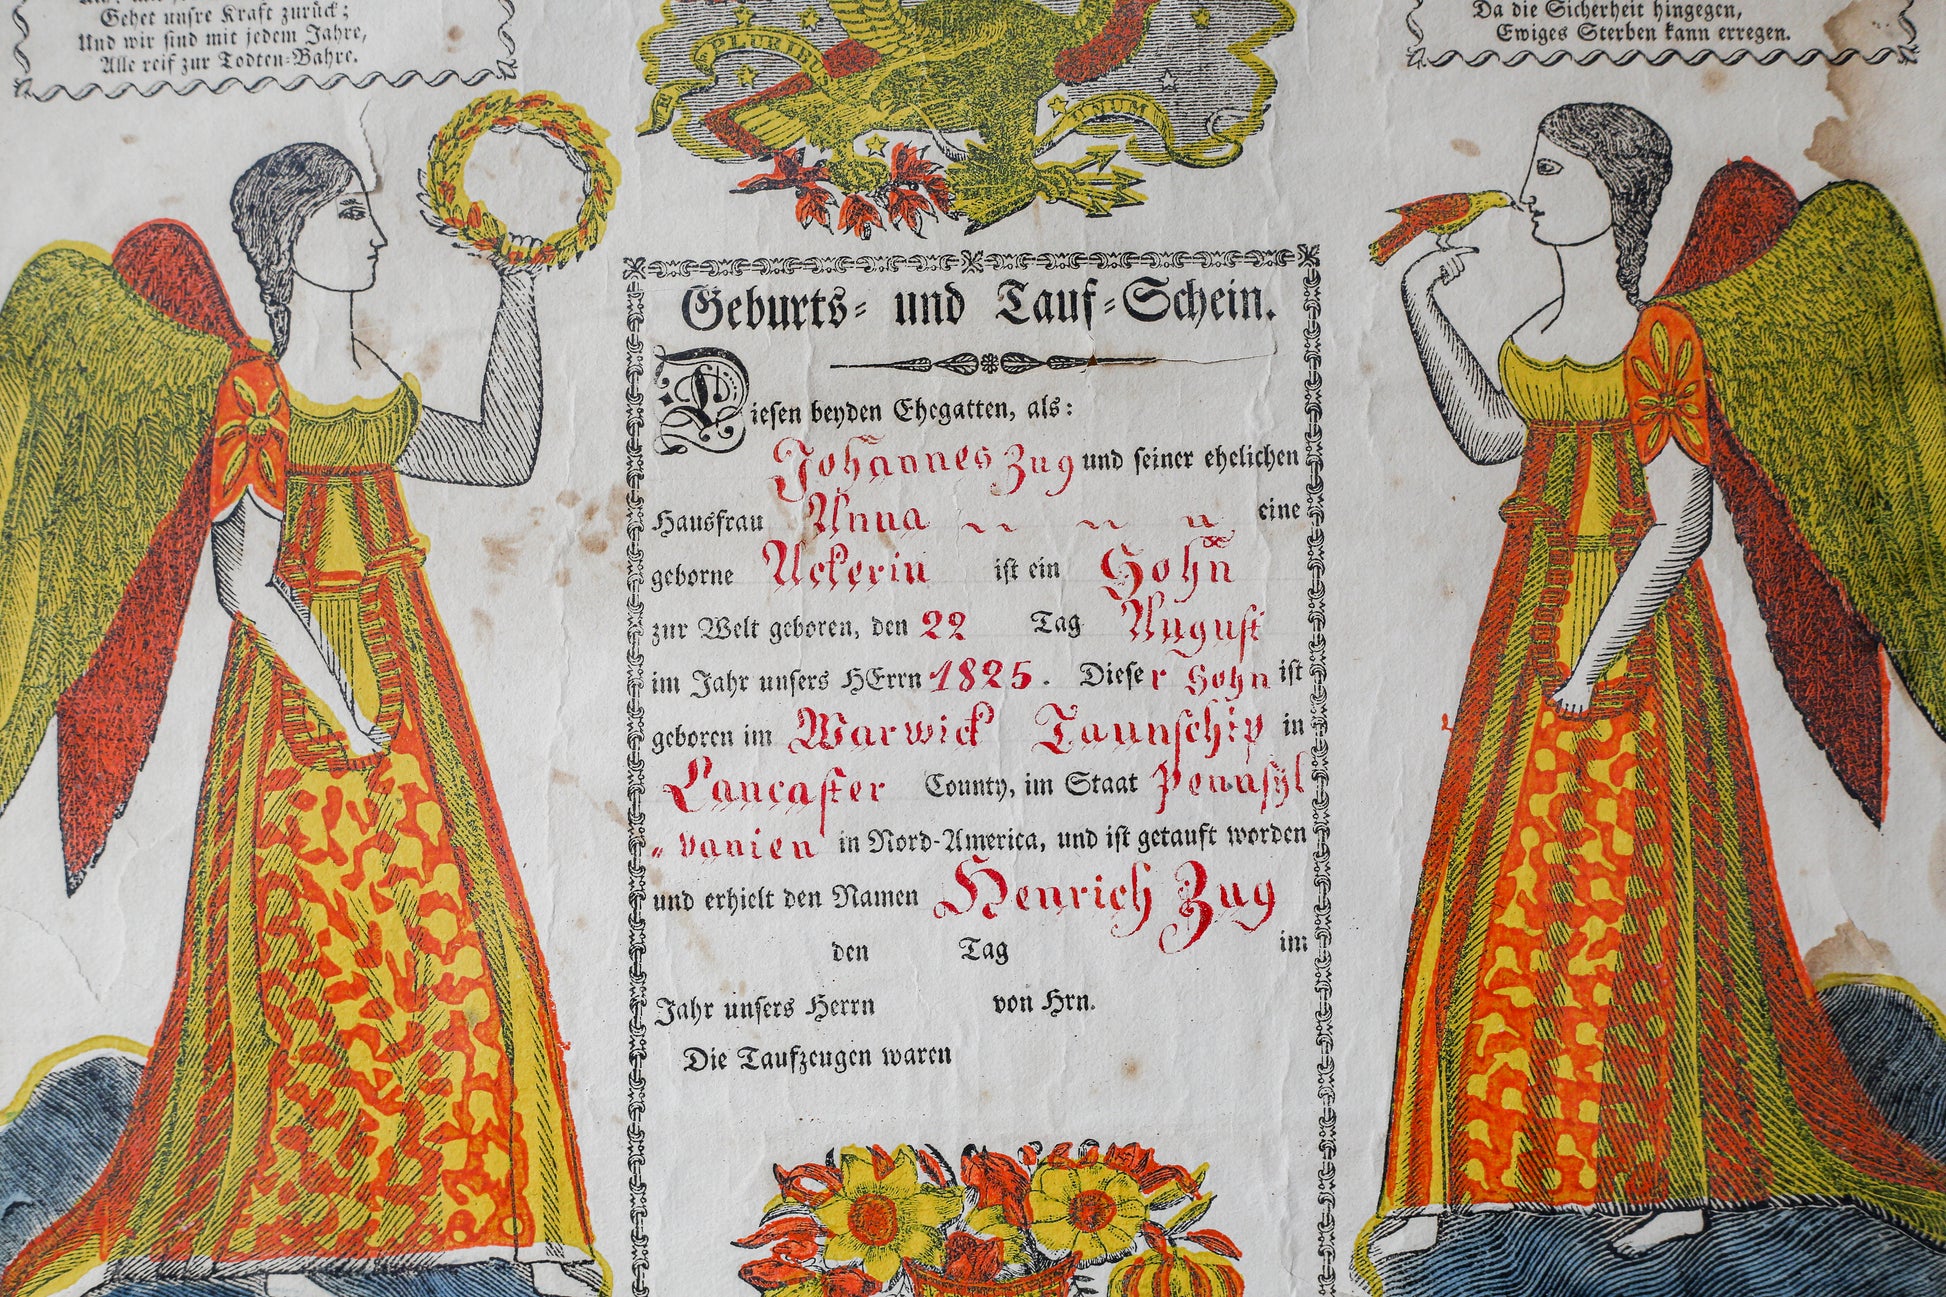 Gehet unsre Kraft zurück;
Und wir sind mit jedem Jahre,
Alle reif zur Todten-Bahre.
Da die Sicherheit hingegen,
Ewiges Sterben kann erregen.
E PLURIBU
UNUM
Geburts- und Tauf-Schein.
Diesen beyden Ehegatten, als:
Johannes Zug und seiner ehelichen
Hausfrau Anna eine
geborne Ackerin ist ein Sohn
zur Welt geboren, den 22 Tag August
im Jahr unsers HErrn 1825. Dieser Sohn ist
geboren im Warwick Taunschip in
Lancaster County, im Staat Pennsyl
vanien in Nord-America, und ist getauft worden
und erhielt den Namen Henrich Zug
den Tag im
Jahr unsers Herrn von Hrn.
Die Taufzeugen waren